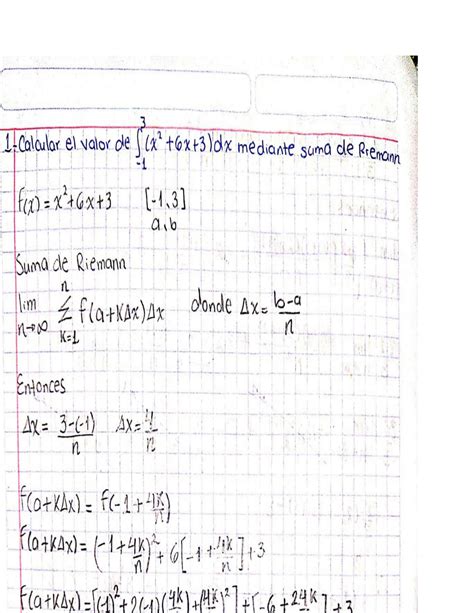 1-Calcular el valor de ∫₋₁³ (x²+6x+3)dx mediante suma de Riemann
f(x)=x²+6x+3 [-1,3]
a,b
Suma de Riemann
lim n→∞ Σ k=1 n f(a+KΔx)Δx donde Δx= b-a/n
Entonces
Δx= 3-(-1)/n Δx= 4/n
f(a+KΔx)= f(-1+4K/n)
f(a+KΔx)= (-1+4K/n)²+6[-1+4K/n]+3
f(a+KΔx)=[(-1)²+2(-1)(4K/n)+(4K/n)²]+[-6+24K/n]+3